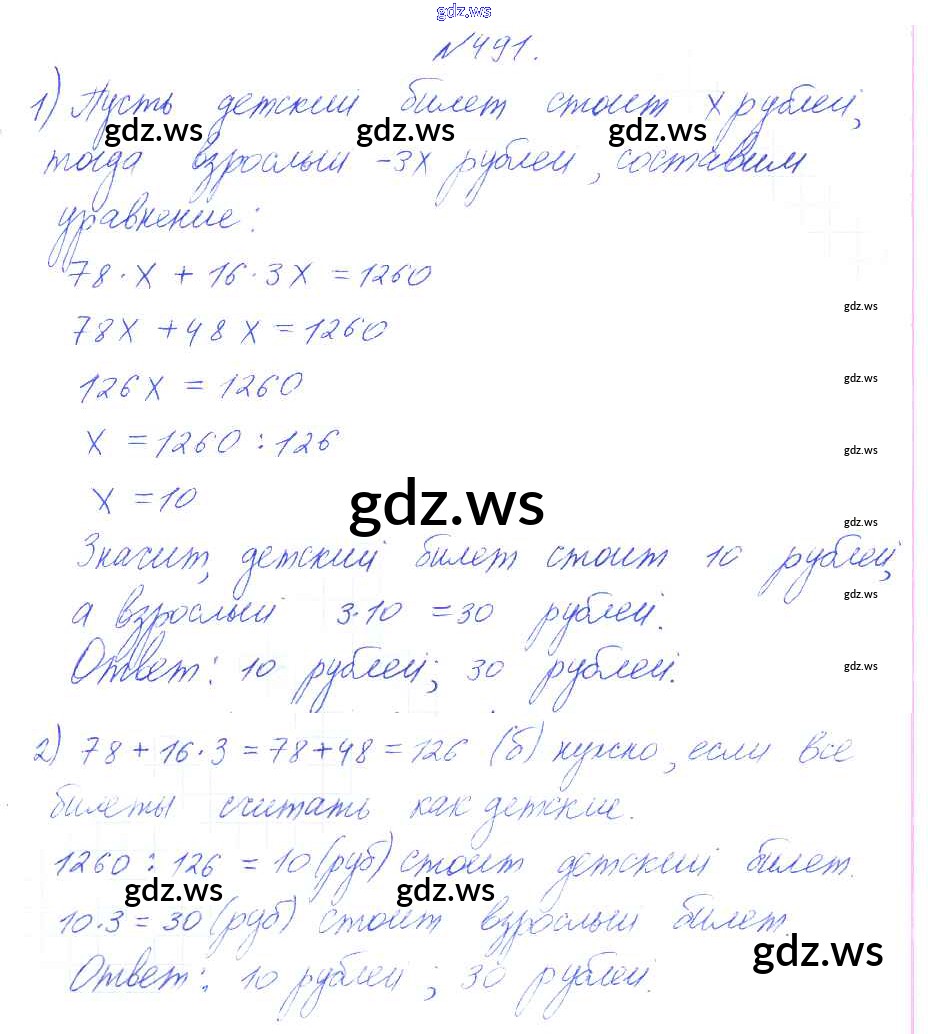 gdz.ws
№491.
1) Пусть детский билет стоит x рублей,
gdz.ws gdz.ws gdz.ws
тогда взрослый -3x рублей, составим
уравнение:
78·x + 16·3x = 1260
gdz.ws
78x + 48x = 1260
gdz.ws
126x = 1260
x = 1260 : 126
gdz.ws
x = 10
gdz.ws
gdz.ws
Значит, детский билет стоит 10 рублей,
gdz.ws
а взрослый 3·10 = 30 рублей.
Ответ: 10 рублей; 30 рублей.
gdz.ws
2) 78 + 16·3 = 78 + 48 = 126 (б) нужно, если все
билеты считать как детские.
1260 : 126 = 10 (руб) стоит детский билет.
gdz.ws gdz.ws
10·3 = 30 (руб) стоит взрослый билет.
gdz.ws
Ответ: 10 рублей; 30 рублей.